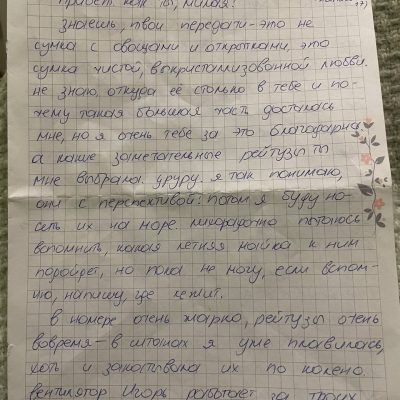 привет, как ты, милая?
знаешь, твои передачи – это не
сумка с овощами и открытками, это
сумка чистой, выкристаллизованной любви.
не знаю, откуда её столько в тебе и по-
чему такая большая часть досталась
мне, но я очень тебе за это благодарна.
а какие замечательные рейтузы ты
мне выбрала. уруру. я так понимаю,
они с перспективой: потом я буду но-
сить их на море. лихорадочно пытаюсь
вспомнить, какая летняя майка к ним
подойдёт, но пока не могу, если вспом-
ню, напишу, где лежит.
в номере очень жарко, рейтузы очень
вовремя – в штанах я уже плавилась,
хоть и закатывала их по колено.
вентилятор Игорь работает за троих